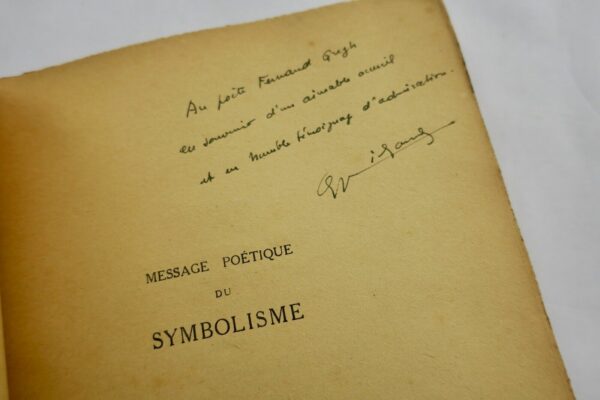 Au poète Fernand Gregh
en souvenir d'un aimable accueil
et en humble témoignage d'admiration.
MESSAGE POÉTIQUE
DU
SYMBOLISME